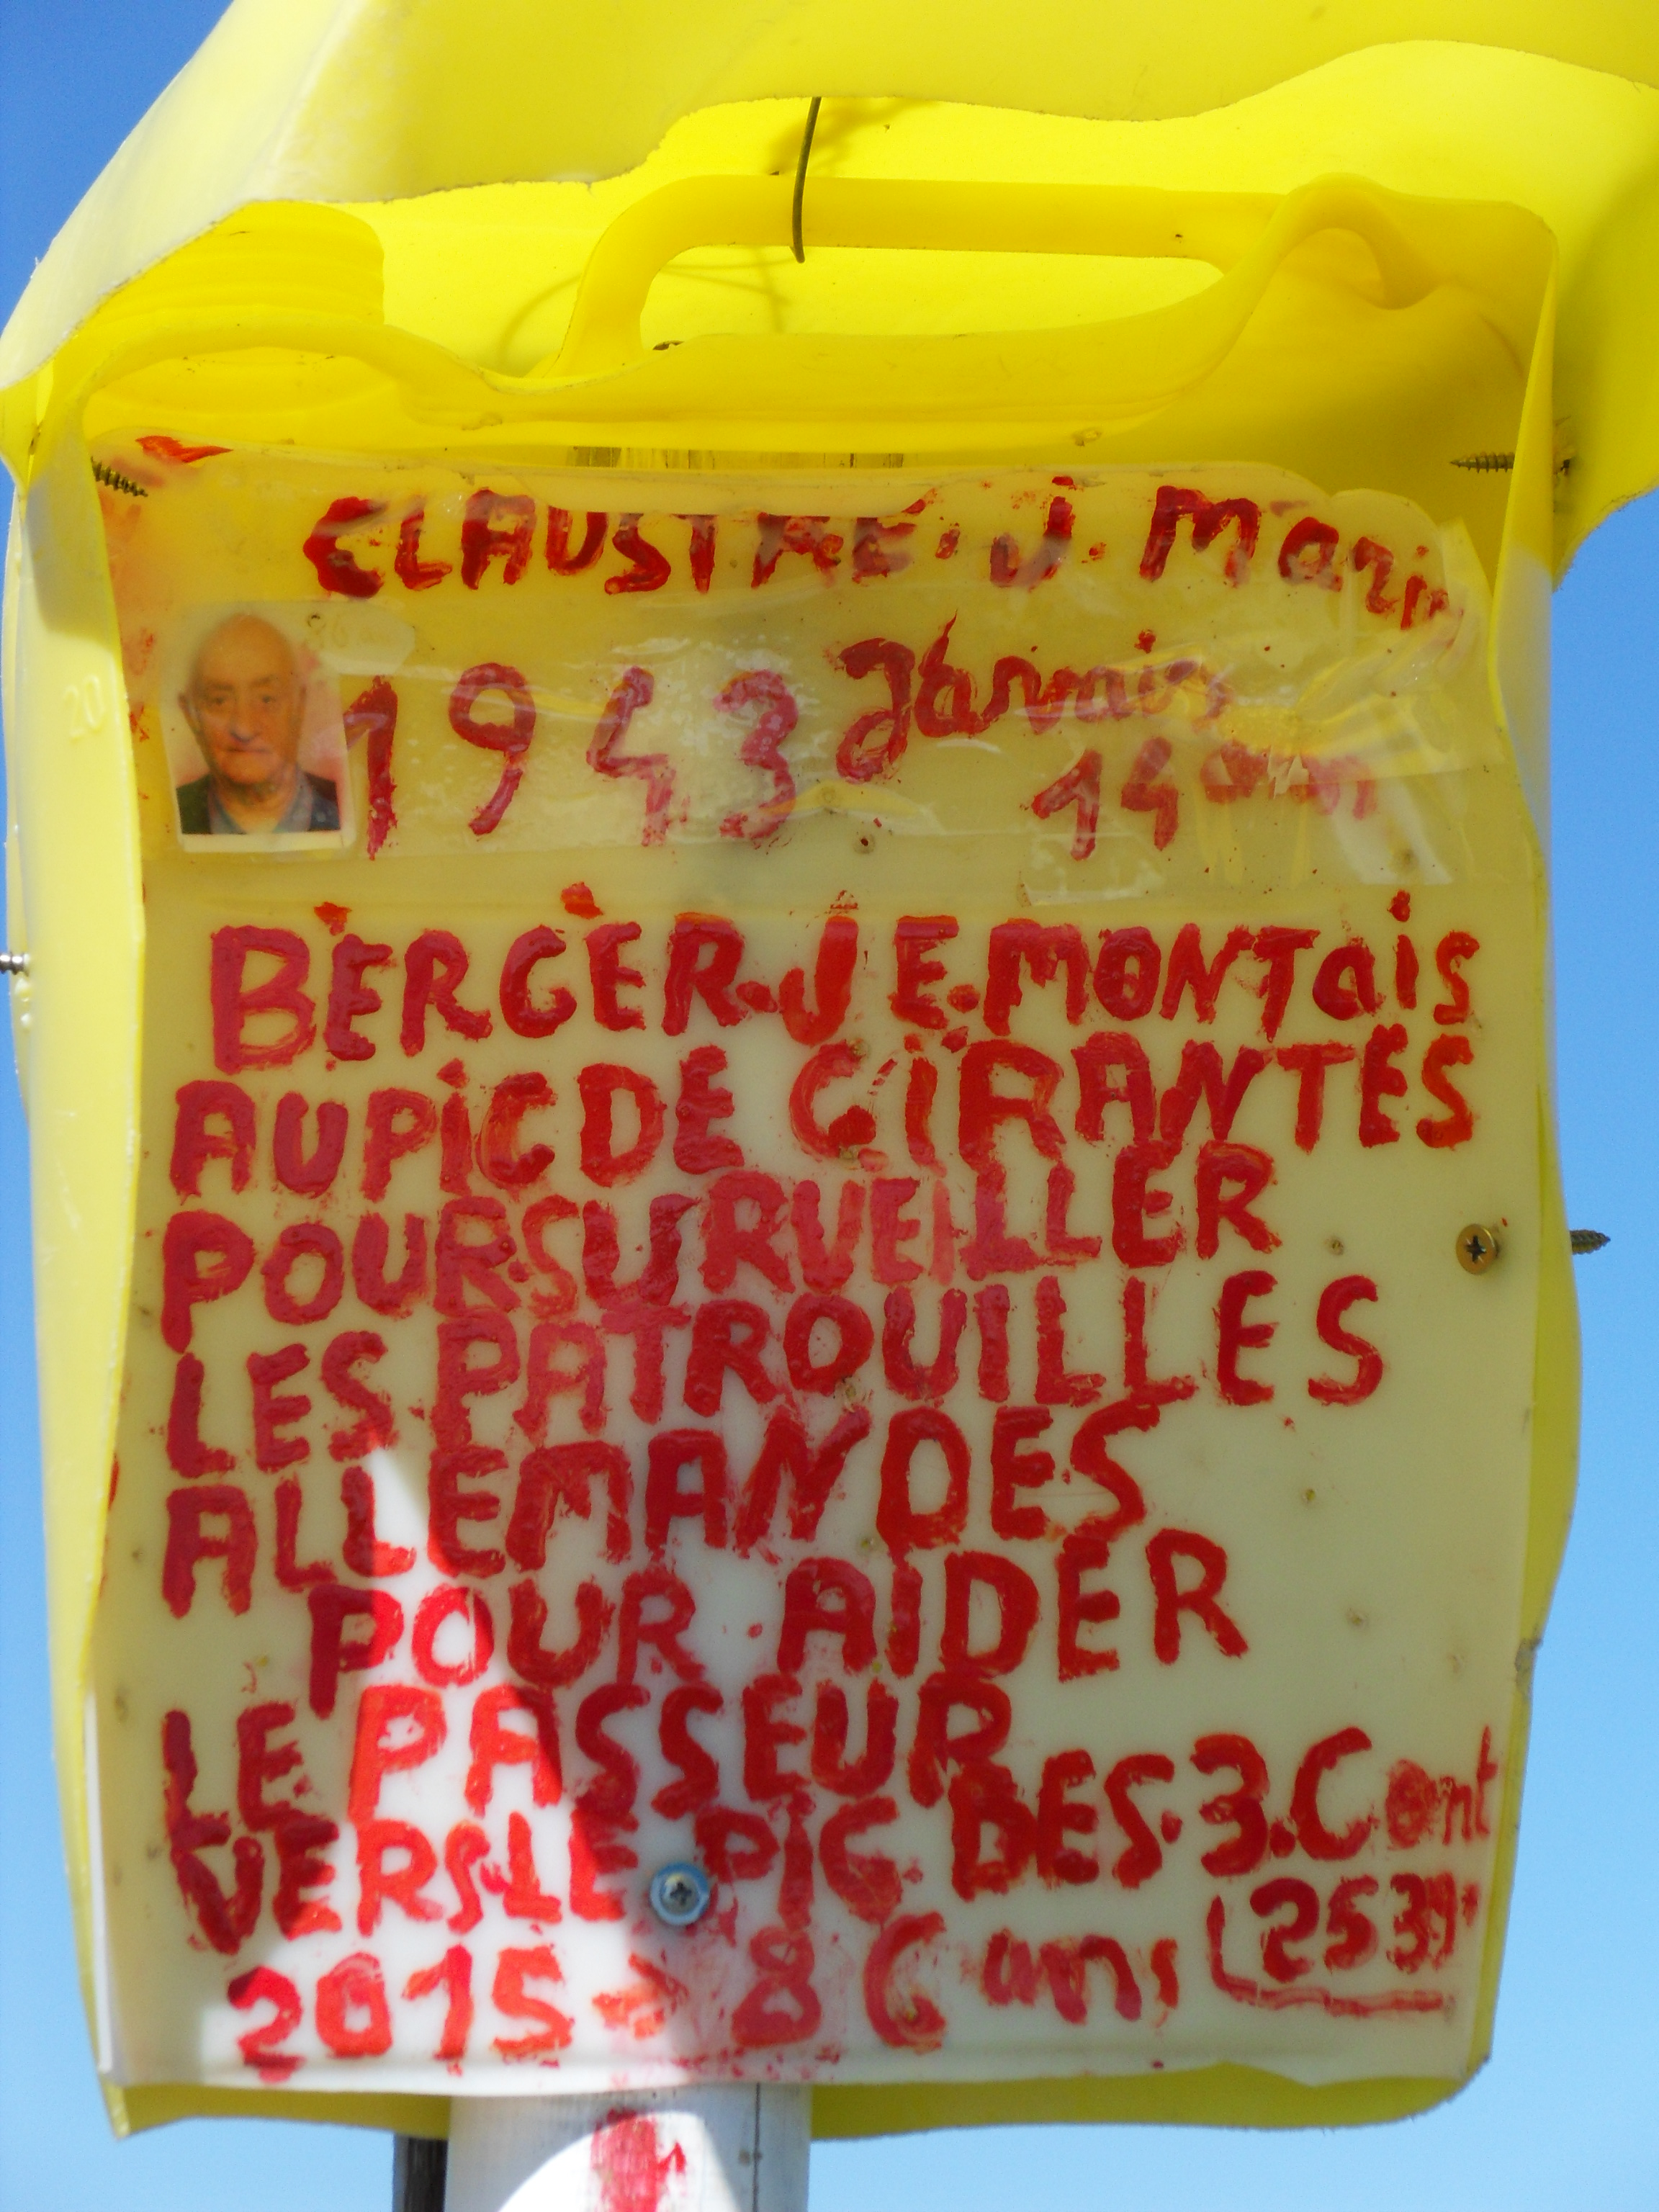 CLAUSTRE. J. Marie
1943 J'avais
14 ans
BÈRGÈR. JE. MONTaiS
AU PiC DE GiRANTES
POUR SURVEILLER
LES PATROUILLES
ALLEMANDES
POUR AIDER
LE PASSEUR
VERS LE PiC DES. 3. Comt
2015 - 86 ans (2531)
20